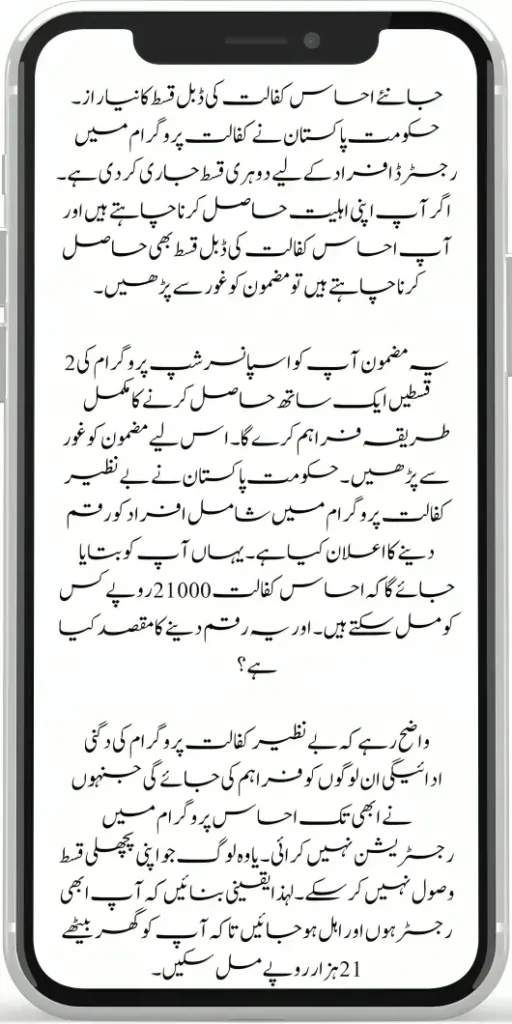 جانئے احساس کفالت کی ڈبل قسط کا نیا راز۔
حکومت پاکستان نے کفالت پروگرام میں
رجسٹرڈ افراد کے لیے دوہری قسط جاری کر دی ہے۔
اگر آپ اپنی اہلیت حاصل کرنا چاہتے ہیں اور
آپ احساس کفالت کی ڈبل قسط بھی حاصل
کرنا چاہتے ہیں تو مضمون کو غور سے پڑھیں۔
یہ مضمون آپ کو اسپانسرشپ پروگرام کی 2
قسطیں ایک ساتھ حاصل کرنے کا مکمل
طریقہ فراہم کرے گا۔ اس لیے مضمون کو غور
سے پڑھیں۔ حکومت پاکستان نے بے نظیر
کفالت پروگرام میں شامل افراد کو رقم
دینے کا اعلان کیا ہے۔ یہاں آپ کو بتایا
جائے گا کہ احساس کفالت 21000 روپے کس
کو مل سکتے ہیں۔ اور یہ رقم دینے کا مقصد کیا
ہے؟
واضح رہے کہ بے نظیر کفالت پروگرام کی دگنی
ادائیگی ان لوگوں کو فراہم کی جائے گی جنہوں
نے ابھی تک احساس پروگرام میں
رجسٹریشن نہیں کرائی۔ یا وہ لوگ جو اپنی پچھلی قسط
وصول نہیں کر سکے۔ لہذا یقینی بنائیں کہ آپ ابھی
رجسٹر ہوں اور اہل ہو جائیں تاکہ آپ کو گھر بیٹھے
21 ہزار روپے مل سکیں۔